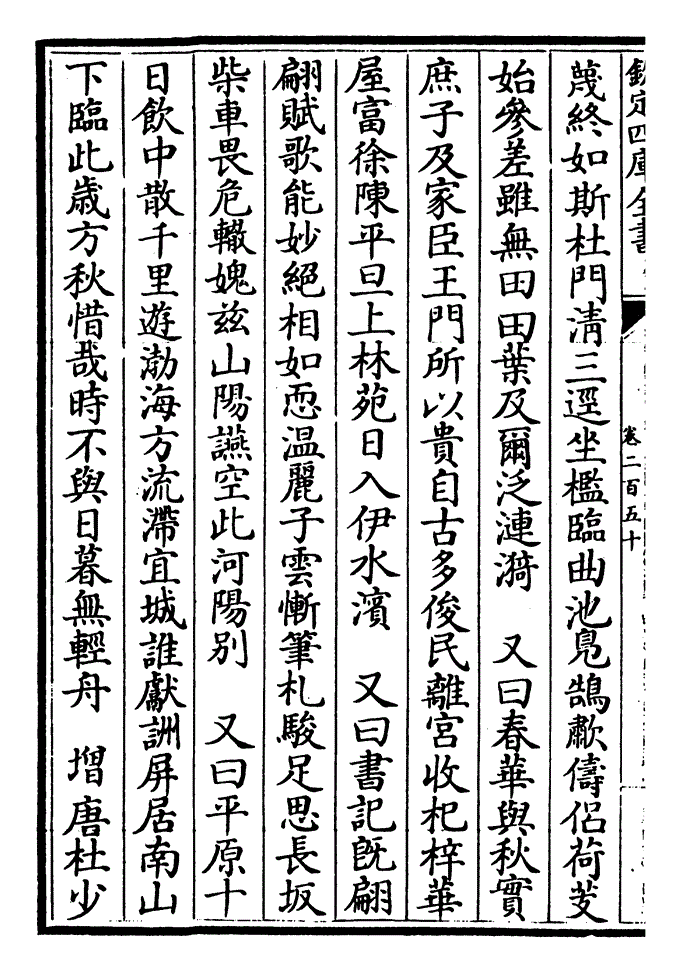 欽定四庫全書
卷二百五十
蔑終如斯杜門清三逕坐檻臨曲池鳬鵠歗儔侶荷芰
始參差雖無田田葉及爾泛漣漪　又曰春華與秋實
庶子及家臣王門所以貴自古多俊民離宮收杞梓華
屋富徐陳平旦上林苑日入伊水濱　又曰書記旣翩
翩賦歌能妙絕相如恧温麗子雲慚筆札駿足思長坂
柴車畏危轍媿兹山陽讌空此河陽别　又曰平原十
日飲中散千里遊渤海方流滯宜城誰獻詶屏居南山
下臨此歳方秋惜哉時不與日暮無輕舟　增唐杜少